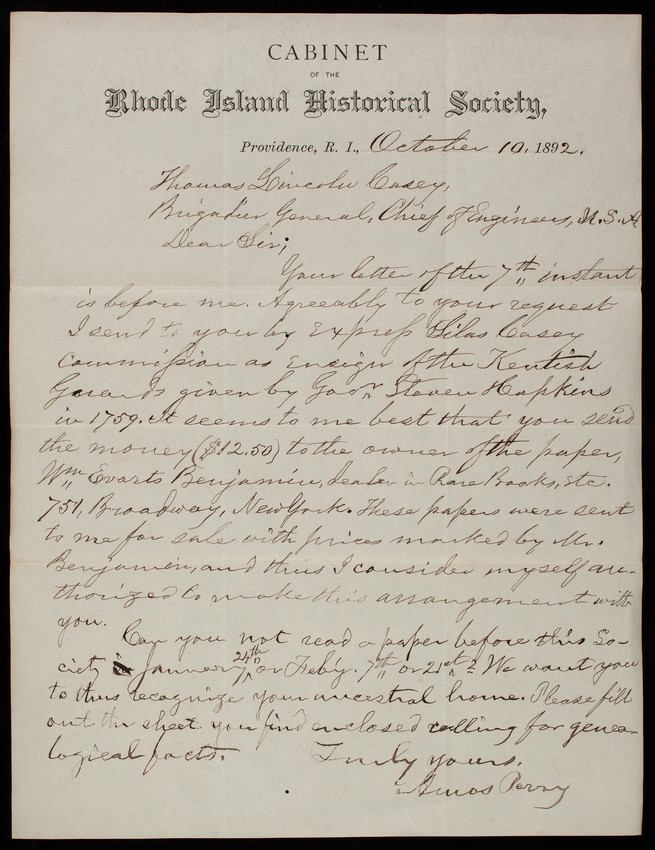 CABINET
OF THE
Rhode Island Historical Society,
Providence, R. I., October 10, 1892.
Thomas Lincoln Casey,
Brigadier General, Chief of Engineers, U.S.A.
Dear Sir;
Your letter of the 7th instant
is before me. Agreeably to your request
I send to you by Express Silas Casey
commission as ensign of the Kentish
Guards given by Govr. Steven Hopkins
in 1759. It seems to me best that you send
the money ($12.50) to the owner of the paper,
Wm Evarts Benjamin, dealer in Rare Books, etc.
751, Broadway, New York. These papers were sent
to me for sale with prices marked by Mr.
Benjamin, and thus I consider myself au-
thorized to make this arrangement with
you.
Can you not read a paper before this So-
ciety January 24th or Feby. 7th or 21st? We want you
to thus recognize your ancestral home. Please fill
out the sheet you find enclosed calling for genea-
logical facts. Truly yours,
Amos Perry